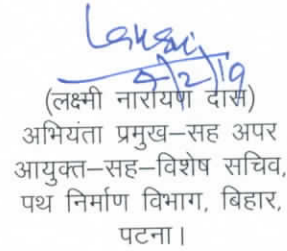 4/2/19
(लक्ष्मी नारायण दास)
अभियंता प्रमुख–सह अपर
आयुक्त–सह–विशेष सचिव,
पथ निर्माण विभाग, बिहार,
पटना।